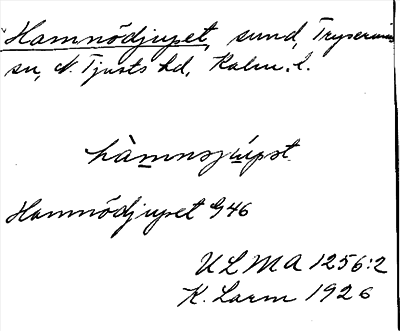 Hamnödjupet, sund, Tryserums
sn, N. Tjusts hd, Kalm. l.
hàmnsjúpst
Hamnödjupet G46
ULMA 1256:2
K. Larm 1926